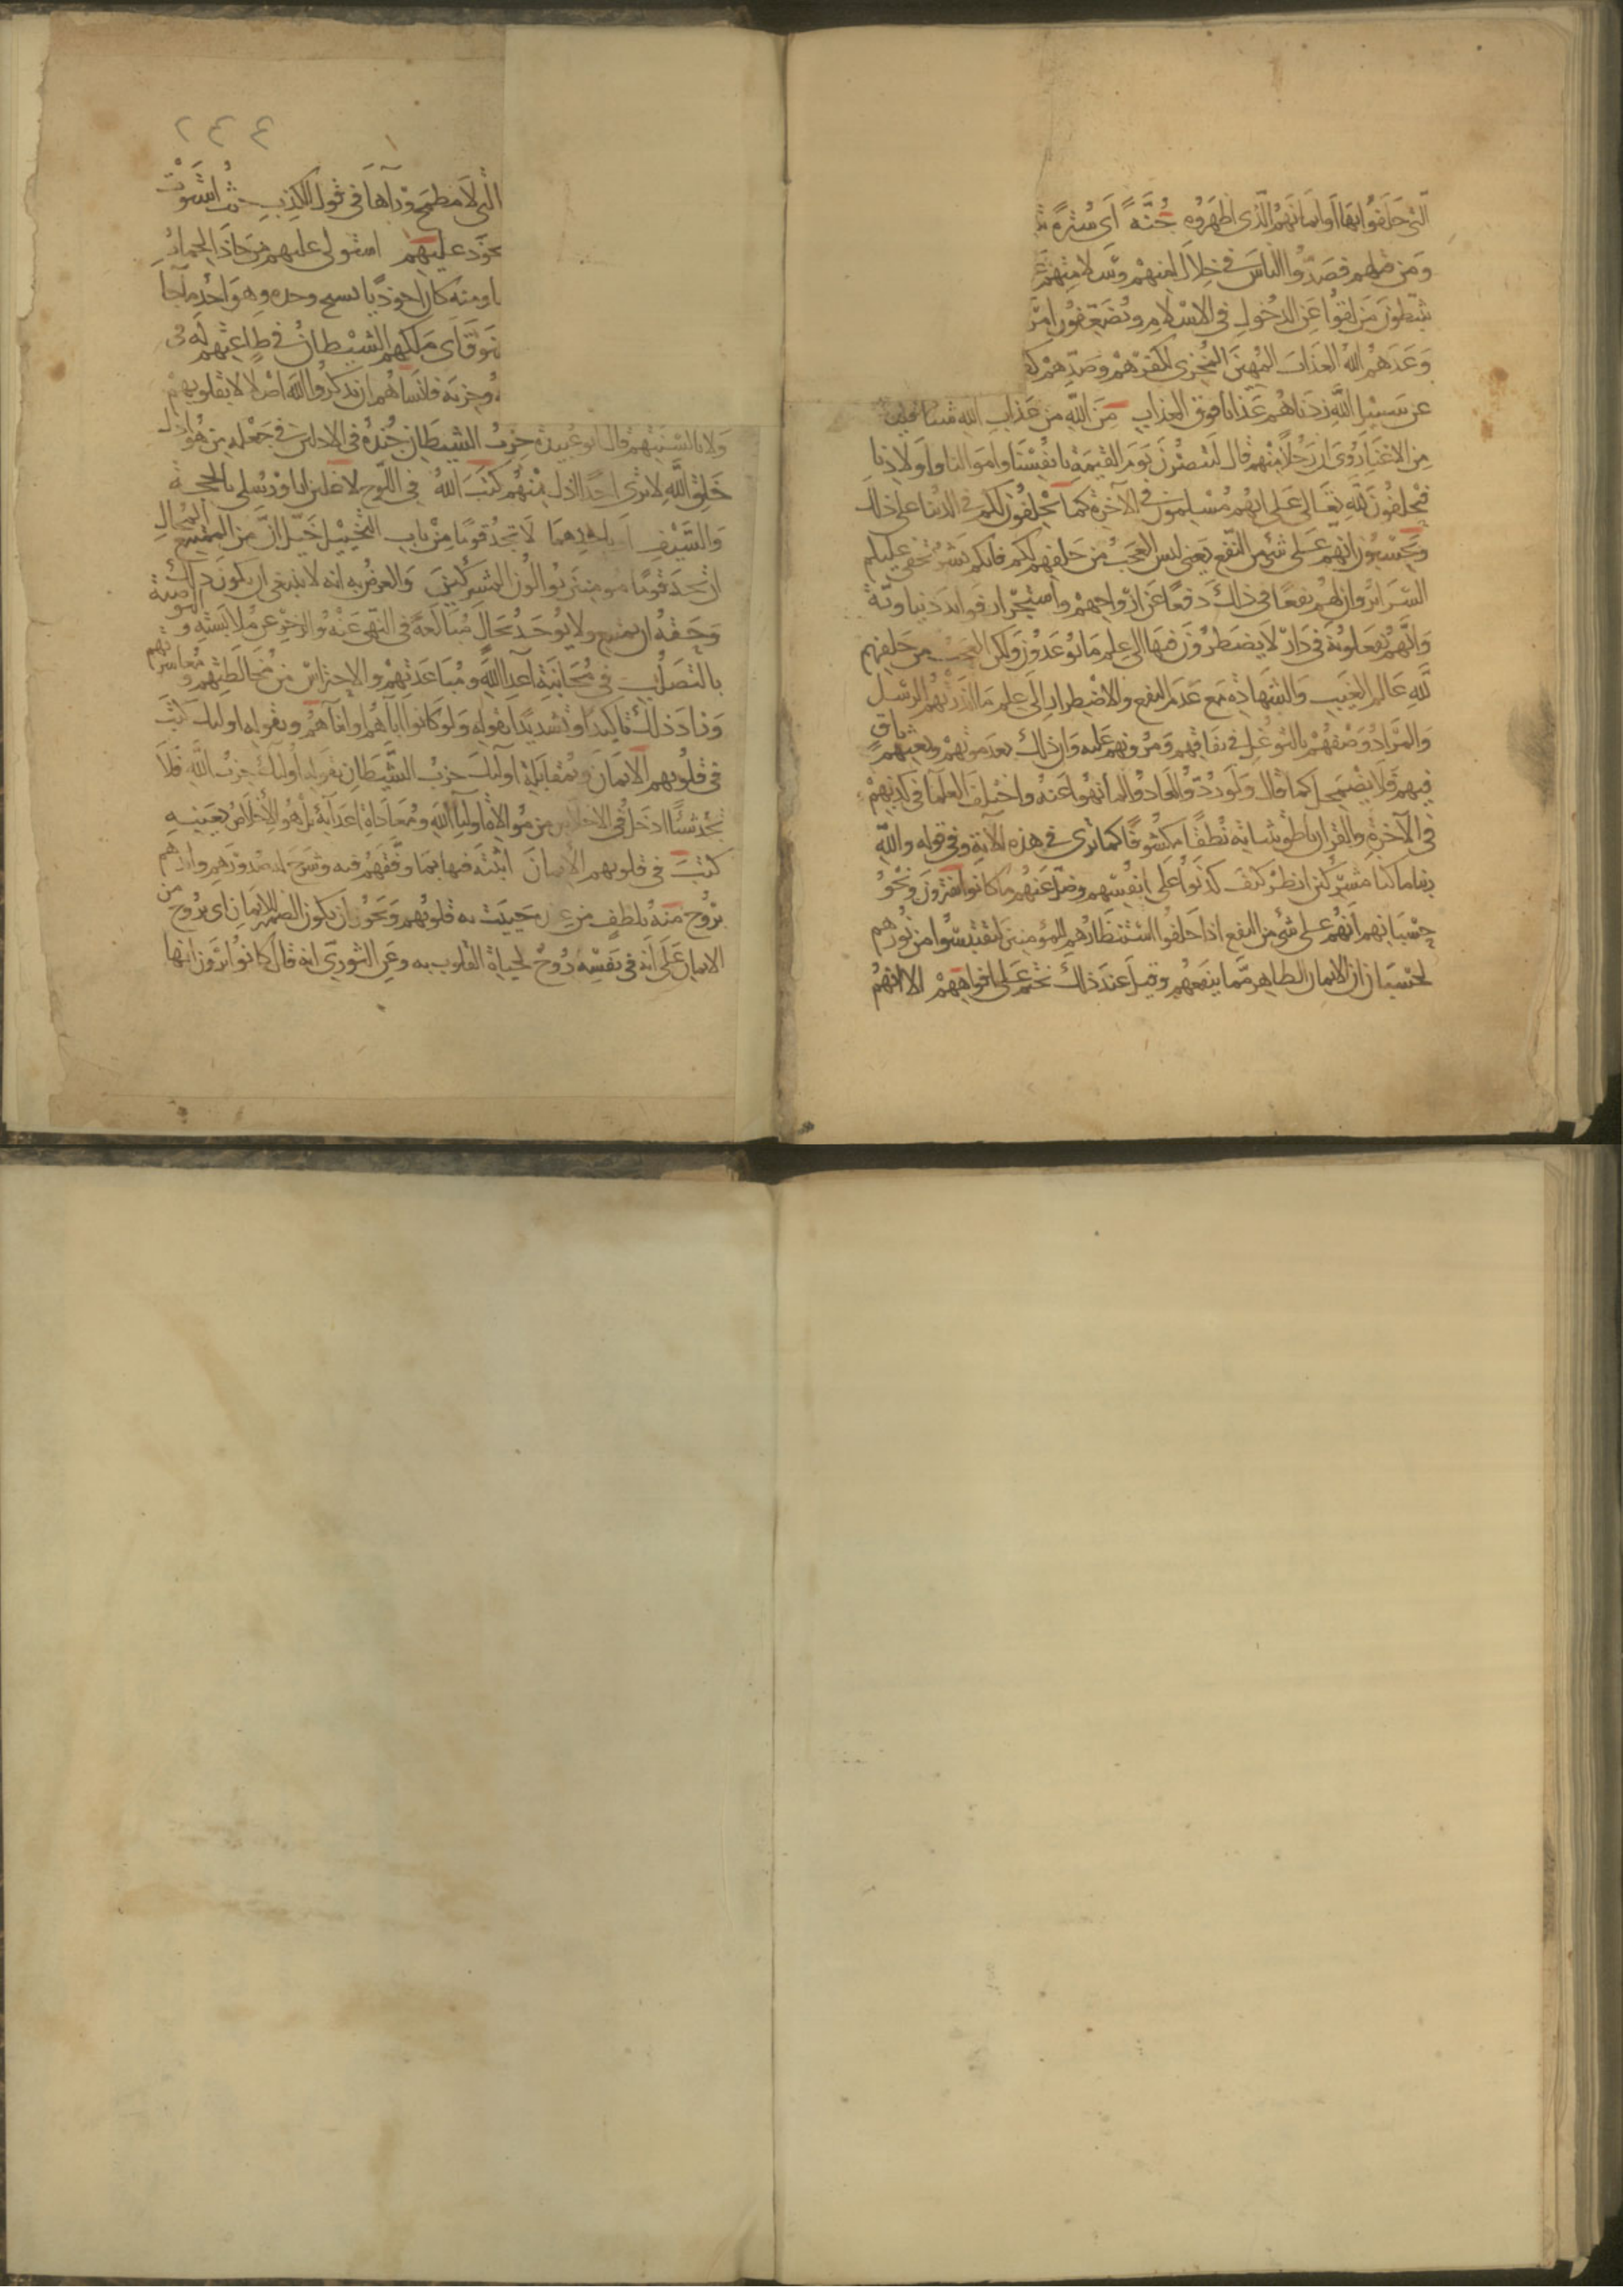 التي حلفوا بها او ايمانهم الذى اظهروه جنة اى سترة
ومن قتلهم فصدوا الناس فى خلال امنهم وسلامتهم
يثبطون من لقوا عن الدخول فى الاسلام ويضعفون امر
وعدهم الله العذاب المهين المخزى لكفرهم وصدهم كقـ
عن سبيل الله زدناهم عذابا فوق العذاب من الله من عذاب الله شيئا قليلا
من الاغناء روى ان رجلا منهم قال لننصرن يوم القيمة بانفسنا واموالنا واولادنا
فيحلفون لله تعالى على انهم مسلمون فى الآخرة كما يحلفون لكم فى الدنيا على ذلك
ويحسبون انهم على شئ من النفع يعنى ليس العجب من حلفهم لكم فانكم بشر تخفى عليكم
السرائر وان لهم نفعا فى ذلك دفعا عن ارواحهم واستجرار فوائد دنياوية
وانهم يفعلونه فى دار لا يضطرون فيها الى علم ما يوعدون ولكن العجب من حلفهم
لله عالم الغيب والشهادة مع عدم النفع والاضطرار الى علم ما انذرتهم الرسل
والمراد وصفهم بالتوغل فى نفاقهم ومرونهم عليه وان ذلك بعد موتهم وبعثهم باق
فيهم فلا يضمحل كما قال ولو ردوا لعادوا لما نهوا عنه واختلف العلما فى كذبهم
فى الآخرة والقران ناطق بثباته نطقا مكشوفا كما ترى فى هذه الآية وفى قوله والله
ربنا ما كنا مشركين انظر كيف كذبوا على انفسهم وضل عنهم ما كانوا يفترون ونحو
حسبانهم انهم على شئ من النفع اذا حلفوا استنظارهم المؤمنين ليقتبسوا من نورهم
لحسبان ان الايمان الظاهر مما ينفعهم وقيل عند ذلك نختم على افواههم الا انهم
٢٤٤
التى لا مطمح ورآها فى قول الكذب حيث استوت
حوذ عليهم استولى عليهم من حاذ الحمار
ا ومنه كان احوذيا نسيج وحده وهو احد ما جا
نوق اى ملكهم الشيطان فى طاعتهم له
وحزبه فانساهم ان يذكروا الله اصلا لا بقلوبهم
ولا بالسنتهم قال ابو عبيدة حزب الشيطان جنده فى الاذلين فى جملة من هو اذل
خلق الله لا ترى احدا اذل منهم كتب الله فى اللوح لاغلبن انا ورسلى بالحجة
والسيف او باحدهما لا تجد قوما من باب التخييل خيل ان من الممتنع المحال
ان تجد قوما مومنين يوالون المشركين والغرض به انه لا ينبغى ان يكون ذلك
وحقه ان يمتنع ولا يوجد بحال مبالغة فى النهى عنه والزجر عن ملابسته والتوصية
بالتصلب فى مجانبة اعدا الله ومباعدتهم والاحتراس من مخالطتهم ومعاشرتهم
وزاد ذلك تاكيدا وتشديدا بقوله ولو كانوا اباهم او ابنآهم وبقوله اوليك كتب
فى قلوبهم الايمان وبمقابلة اوليك حزب الشيطان بقوله اوليك حزب الله فلا
تجد شيئا ادخل فى الاخلاص من موالاة اوليا الله ومعاداة اعدآية بل هو الاخلاص بعينه
كتب فى قلوبهم الايمان اثبته فيها بما وفقهم فيه وشرح له صدورهم وايدهم
بروح منه بلطف من عنده حييت به قلوبهم ويجوز ان يكون الضمير للايمان اى بروح من
الايمان على انه فى نفسه روح لحياة القلوب به وعن الثورى انه قال كانوا يرون انها